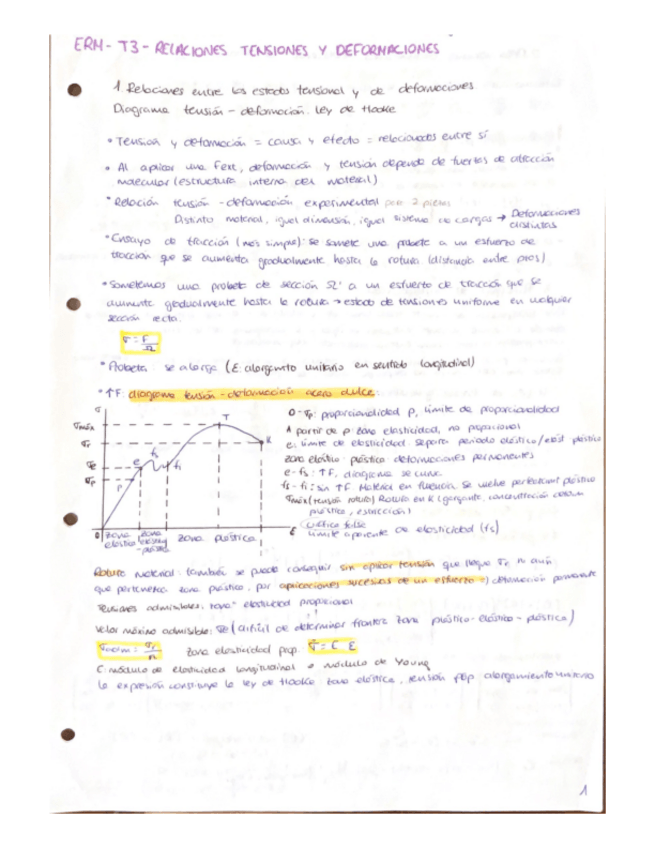 ERM - T3 - RELACIONES TENSIONES Y DEFORMACIONES
1. Relaciones entre los estados tensional y de deformaciones
Diagrama tensión - deformación. Ley de Hooke
• Tensión y deformación = causa y efecto = relacionados entre sí
• Al aplicar una Fext, deformación y tensión depende de fuerzas de atracción
molecular (estructura interna del material)
• Relación tensión - deformación experimental para 2 piezas
Distinto material, igual dimensión, igual sistema de cargas → Deformaciones
distintas
• Ensayo de tracción (más simple): se somete una probeta a un esfuerzo de
tracción que se aumenta gradualmente hasta la rotura (distancia entre ptos)
• Sometemos una probeta de sección Ω a un esfuerzo de tracción que se
aumenta gradualmente hasta la rotura → estado de tensiones uniforme en cualquier
sección recta.
σ = F/Ω
• Probeta se alarga (ε: alargamiento unitario en sentido longitudinal)
• ↑F: diagrama tensión - deformación acero dulce
σ
σmáx
σr
σe
σp
T
K
e
fs
fi
p
O
ε
zona elástica
zona plástica
zona plástica
O - σp: proporcionalidad p, límite de proporcionalidad
A partir de p: zona elasticidad, no proporcional
e: límite de elasticidad. Separa periodo elástico/elást plástico
zona elástico plástica deformaciones permanentes
e - fs: ↑F, diagrama se curva
fs - fi: sin ↑F Material en fluencia. Se vuelve perfectam plástico
σmáx (tensión rotura) Rotura en K (garganta, concentración deform
plástica, estricción)
límite aparente de elasticidad (fs)
Rotura material: también se puede conseguir sin aplicar tensión que llegue σr ni aún
que pertenezca zona plástica, por aplicaciones sucesivas de un esfuerzo → deformación permanente
Tensiones admisibles: zona elasticidad proporcional
Valor máximo admisible: σe (difícil de determinar frontera zona plástico-elástico-plástica)
σadm = σe/n zona elasticidad prop. σ = E ε
E: módulo de elasticidad longitudinal o módulo de Young
la expresión constituye la ley de Hooke zona elástica, tensión prop alargamiento unitario
1